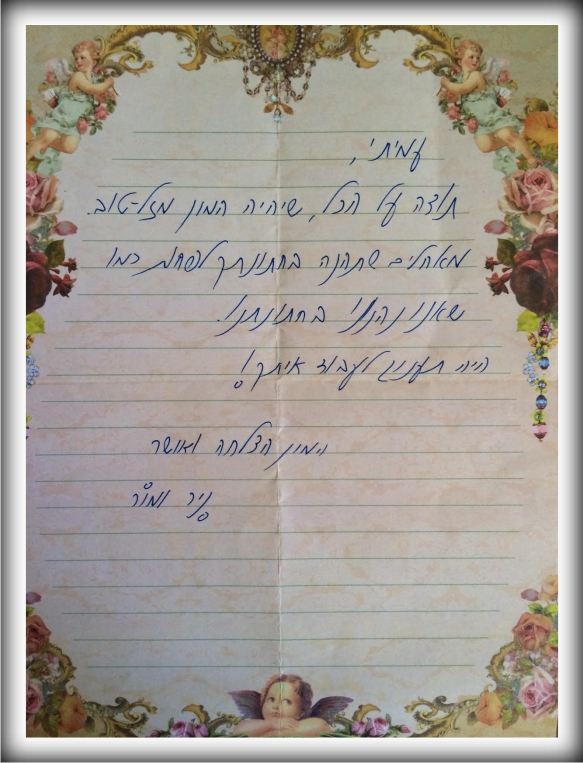 עמיתי,
תודה על הכל, שיהיה המון מזל-טוב.
מאחלים שתהנה בחתונתך לפחות כמו
שאנו נהננו בחתונתנו.
היה תענוג לעבוד איתך!
המון הצלחה ואושר
ניר ומור